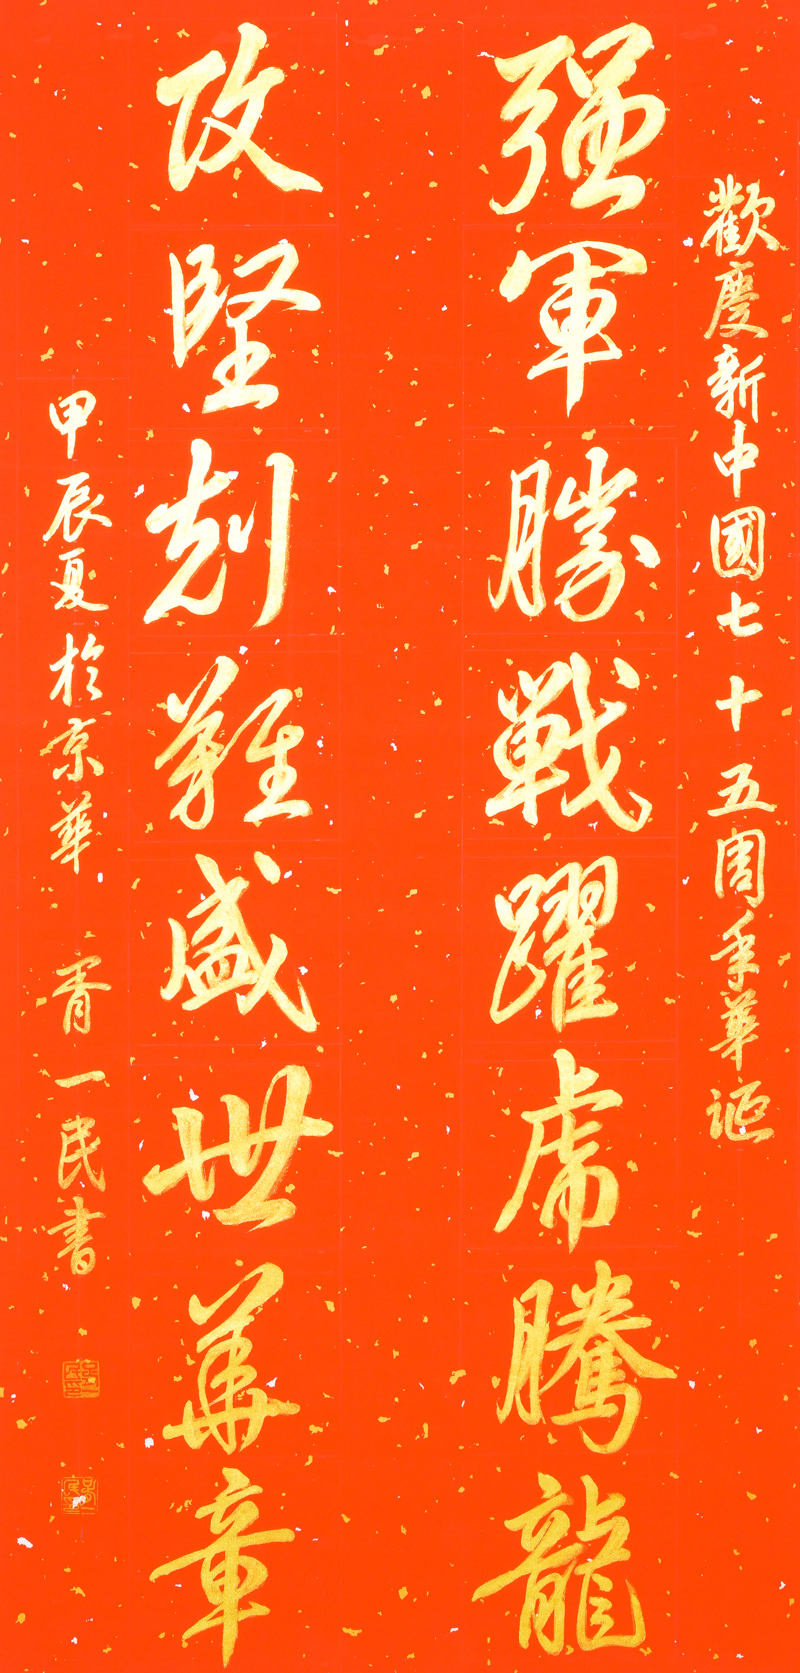 歡慶新中國七十五周年華诞
强軍勝戰躍虎騰龍
攻堅剋難盛世華章
甲辰夏於京華 胥一民書